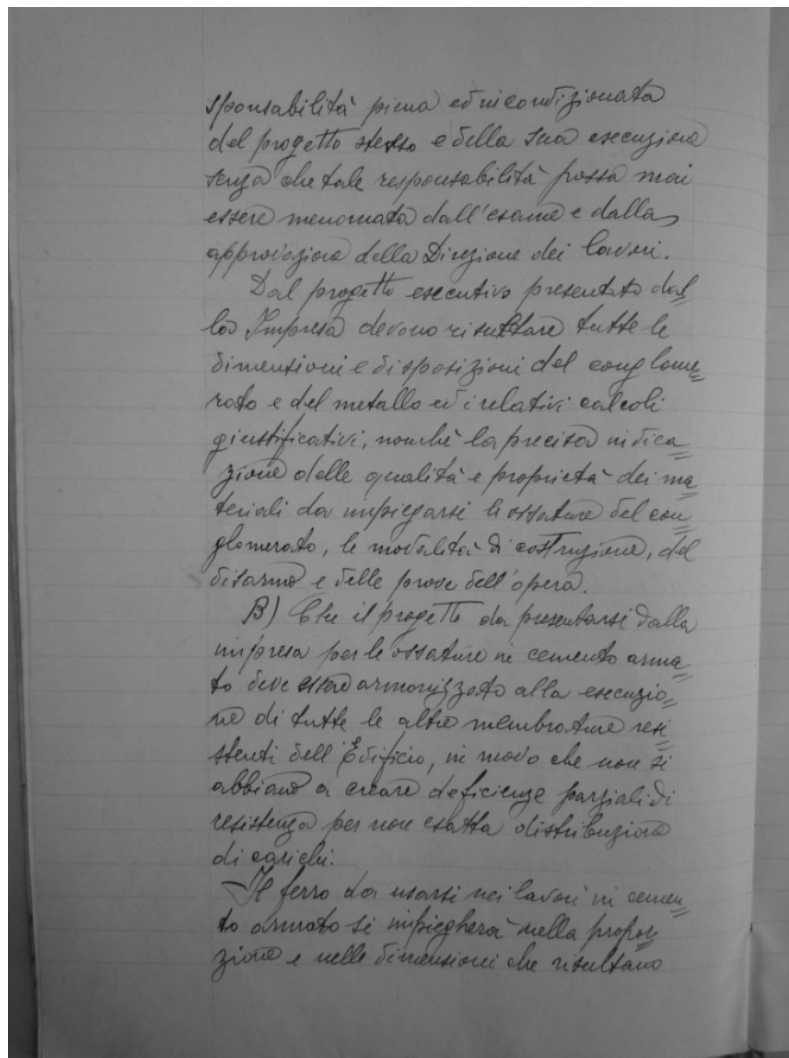 sponsabilità piena ed incondizionata
del progetto stesso e della sua esecuzione
senza che tale responsabilità possa mai
essere menomata dall'esame e dalla
approvazione della Direzione dei lavori.
Dal progetto esecutivo presentato dal=
la Impresa devono risultare tutte le
dimensioni e disposizioni del conglome=
rato e del metallo ed i relativi calcoli
giustificativi, nonchè la precisa indica=
zione delle qualità e proprietà dei ma=
teriali da impiegarsi le ossature del con=
glomerato, le modalità di costruzione, del
disarmo e delle prove dell'opera.
B) Che il progetto da presentarsi dalla
impresa per le ossature in cemento arma=
to deve essere armonizzato alla esecuzio=
ne di tutte le altre membrature resi=
stenti dell'Edificio, in modo che non si
abbiano a creare deficienze parziali di
resistenza per non esatta distribuzione
di carichi.
Il ferro da usarsi nei lavori in cemen=
to armato si impiegherà nella propor=
zione e nelle dimensioni che risultano